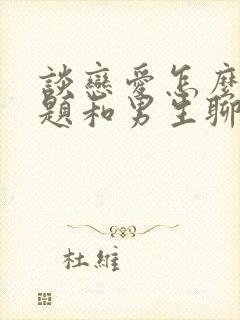 談戀愛怎麼
題和男生聊
杜維